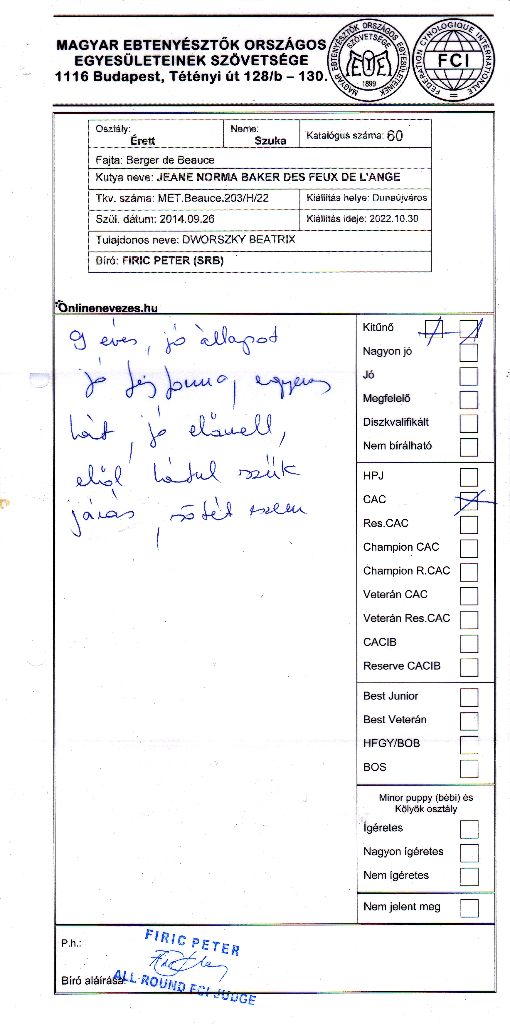 MAGYAR EBTENYÉSZTŐK ORSZÁGOS
EGYESÜLETEINEK SZÖVETSÉGE
1116 Budapest, Tétényi út 128/b – 130.
MAGYAR EBTENYÉSZTŐK ORSZÁGOS EGYESÜLETEINEK SZÖVETSÉGE
MEOE
1899
FEDERATION CYNOLOGIQUE INTERNATIONALE
FCI
Osztály: Érett
Neme: Szuka
Katalógus száma: 60
Fajta: Berger de Beauce
Kutya neve: JEANE NORMA BAKER DES FEUX DE L'ANGE
Tkv. száma: MET.Beauce.203/H/22
Kiállítás helye: Dunaújváros
Szül. dátum: 2014.09.26
Kiállítás ideje: 2022.10.30
Tulajdonos neve: DWORSZKY BEATRIX
Bíró: FIRIC PETER (SRB)
Onlinenevezes.hu
9 éves, jó állapot
jó fej forma, egyenes
hát, jó előmell,
elöl hátul szűk
járás, sötét szem
Kitűnő 1
Nagyon jó
Jó
Megfelelő
Diszkvalifikált
Nem bírálható
HPJ
CAC
Res.CAC
Champion CAC
Champion R.CAC
Veterán CAC
Veterán Res.CAC
CACIB
Reserve CACIB
Best Junior
Best Veterán
HFGY/BOB
BOS
Minor puppy (bébi) és
Kölyök osztály
Ígéretes
Nagyon ígéretes
Nem ígéretes
Nem jelent meg
P.h.:
FIRIC PETER
Bíró aláírása
ALL ROUND FCI JUDGE